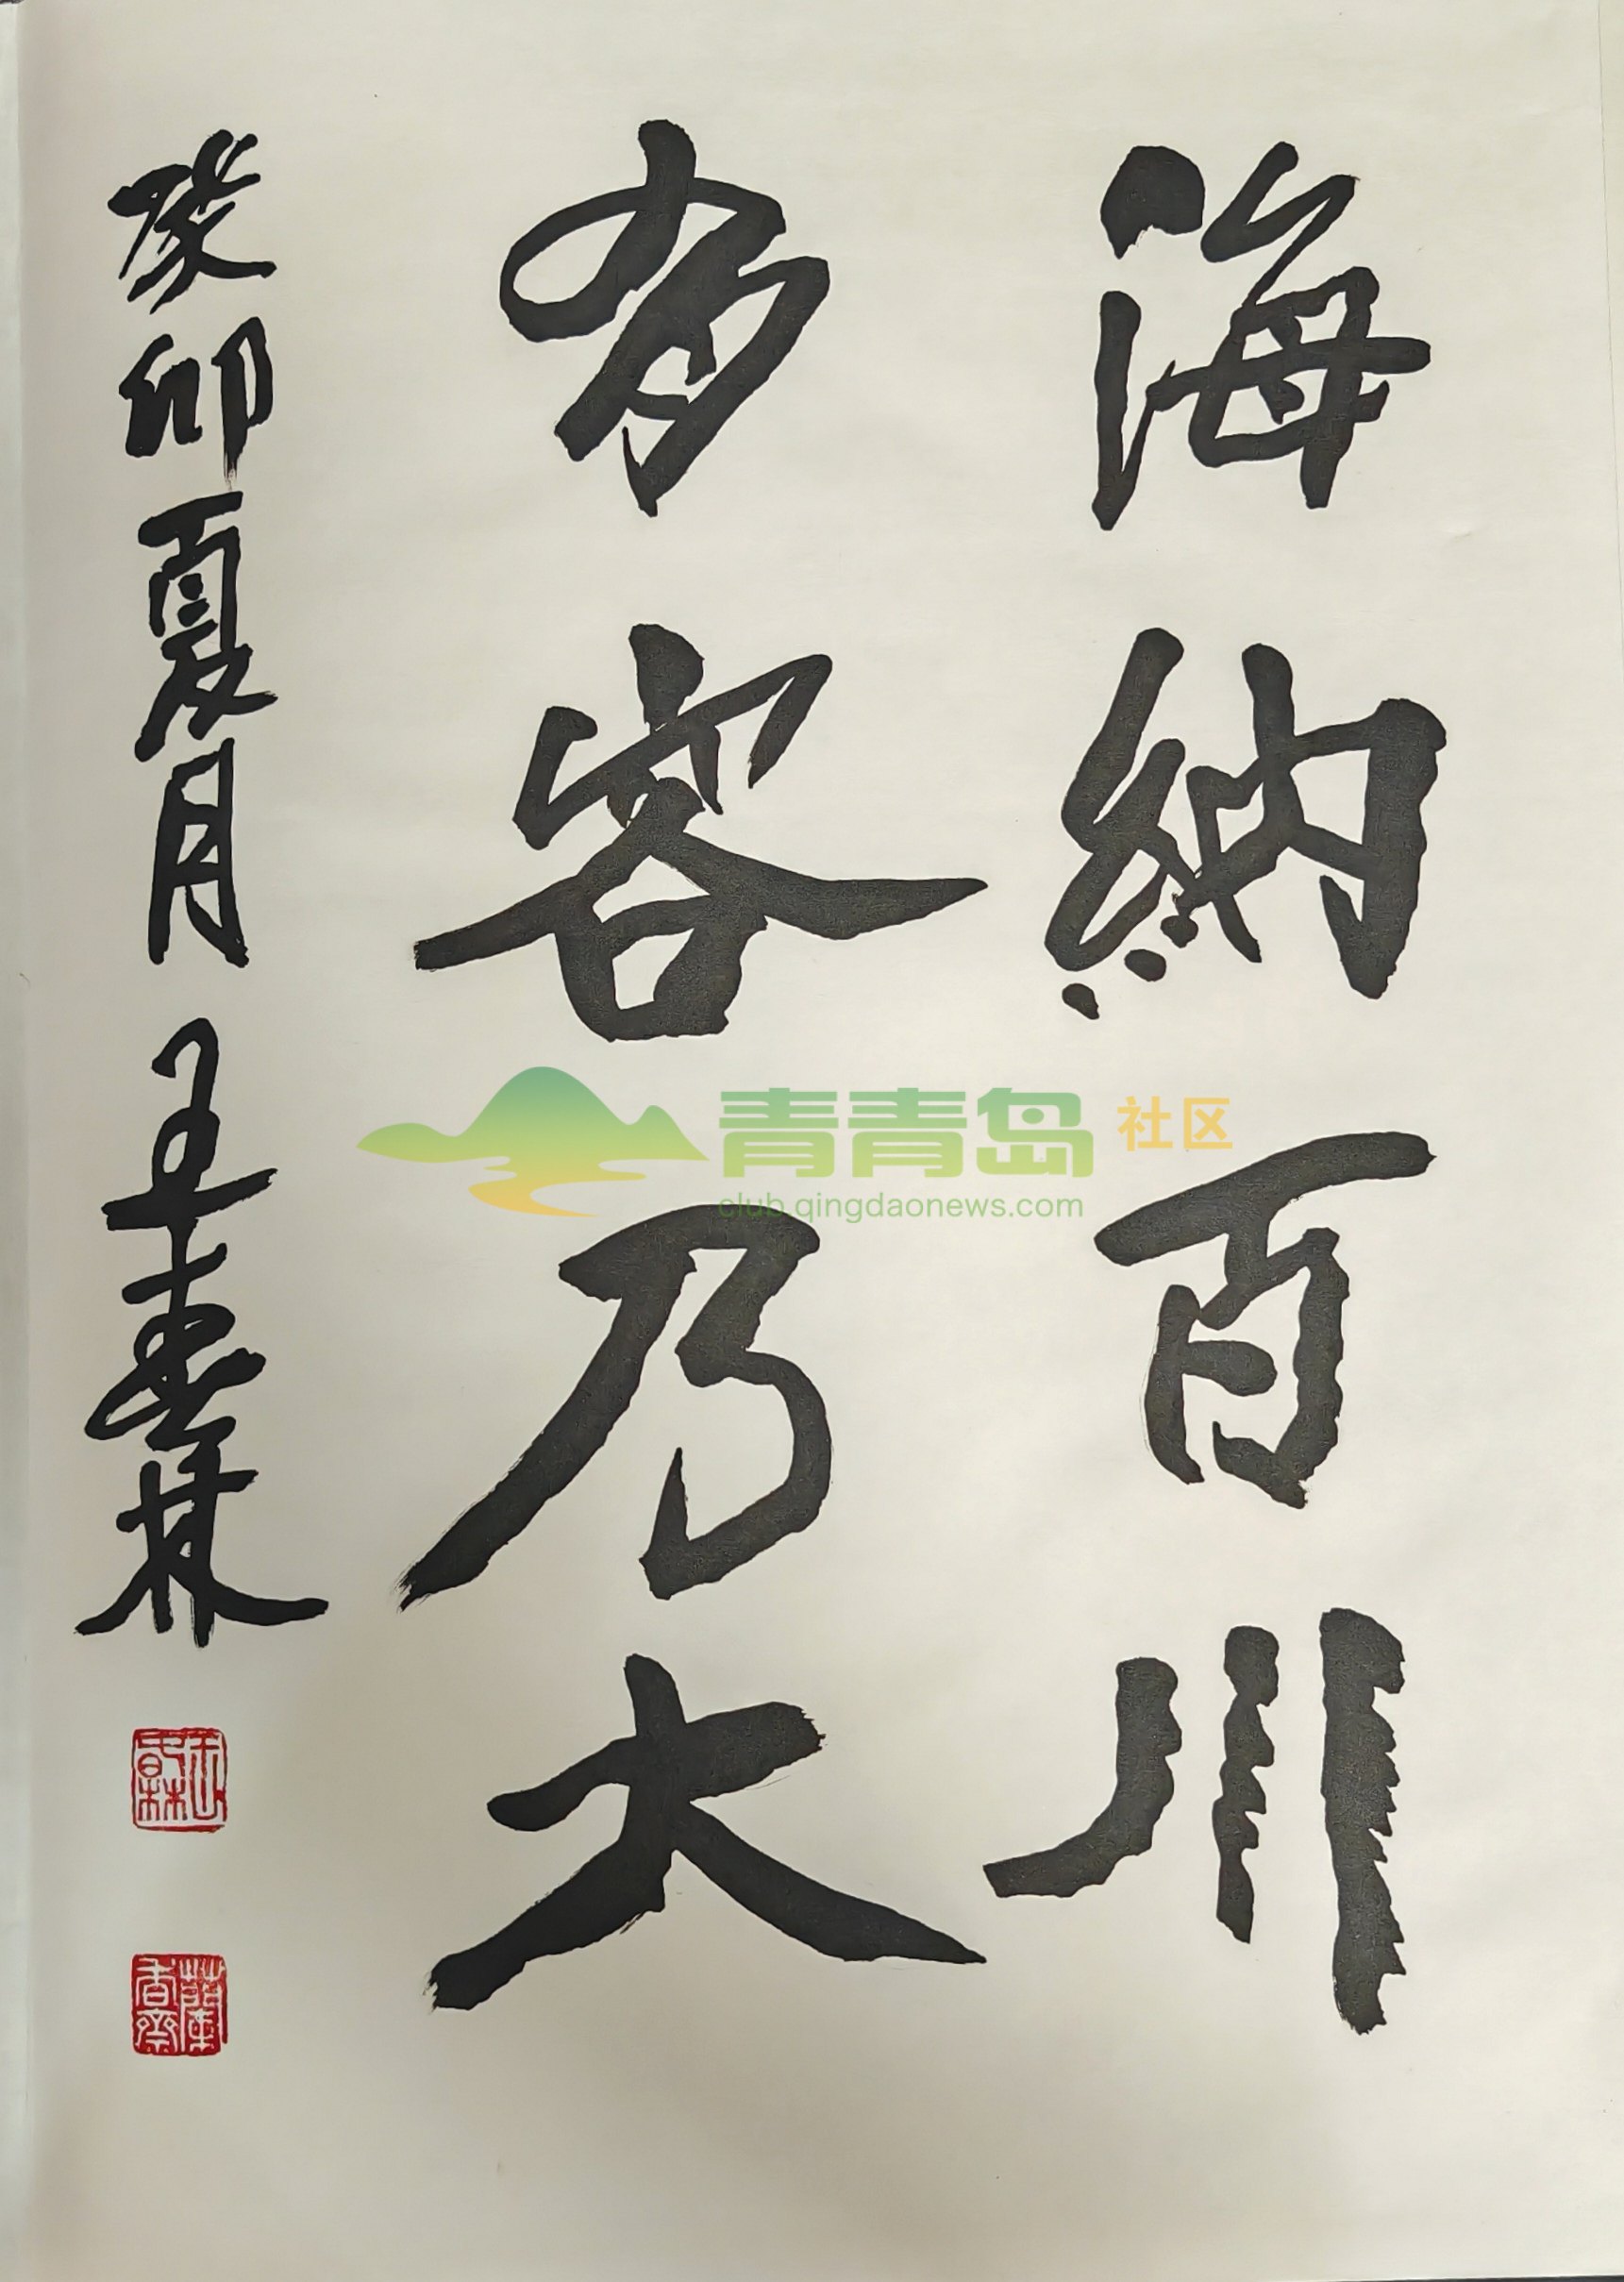 海纳百川
有容乃大
癸卯夏月 王春林
蘭香齋
青青岛 社区
club.qingdaonews.com